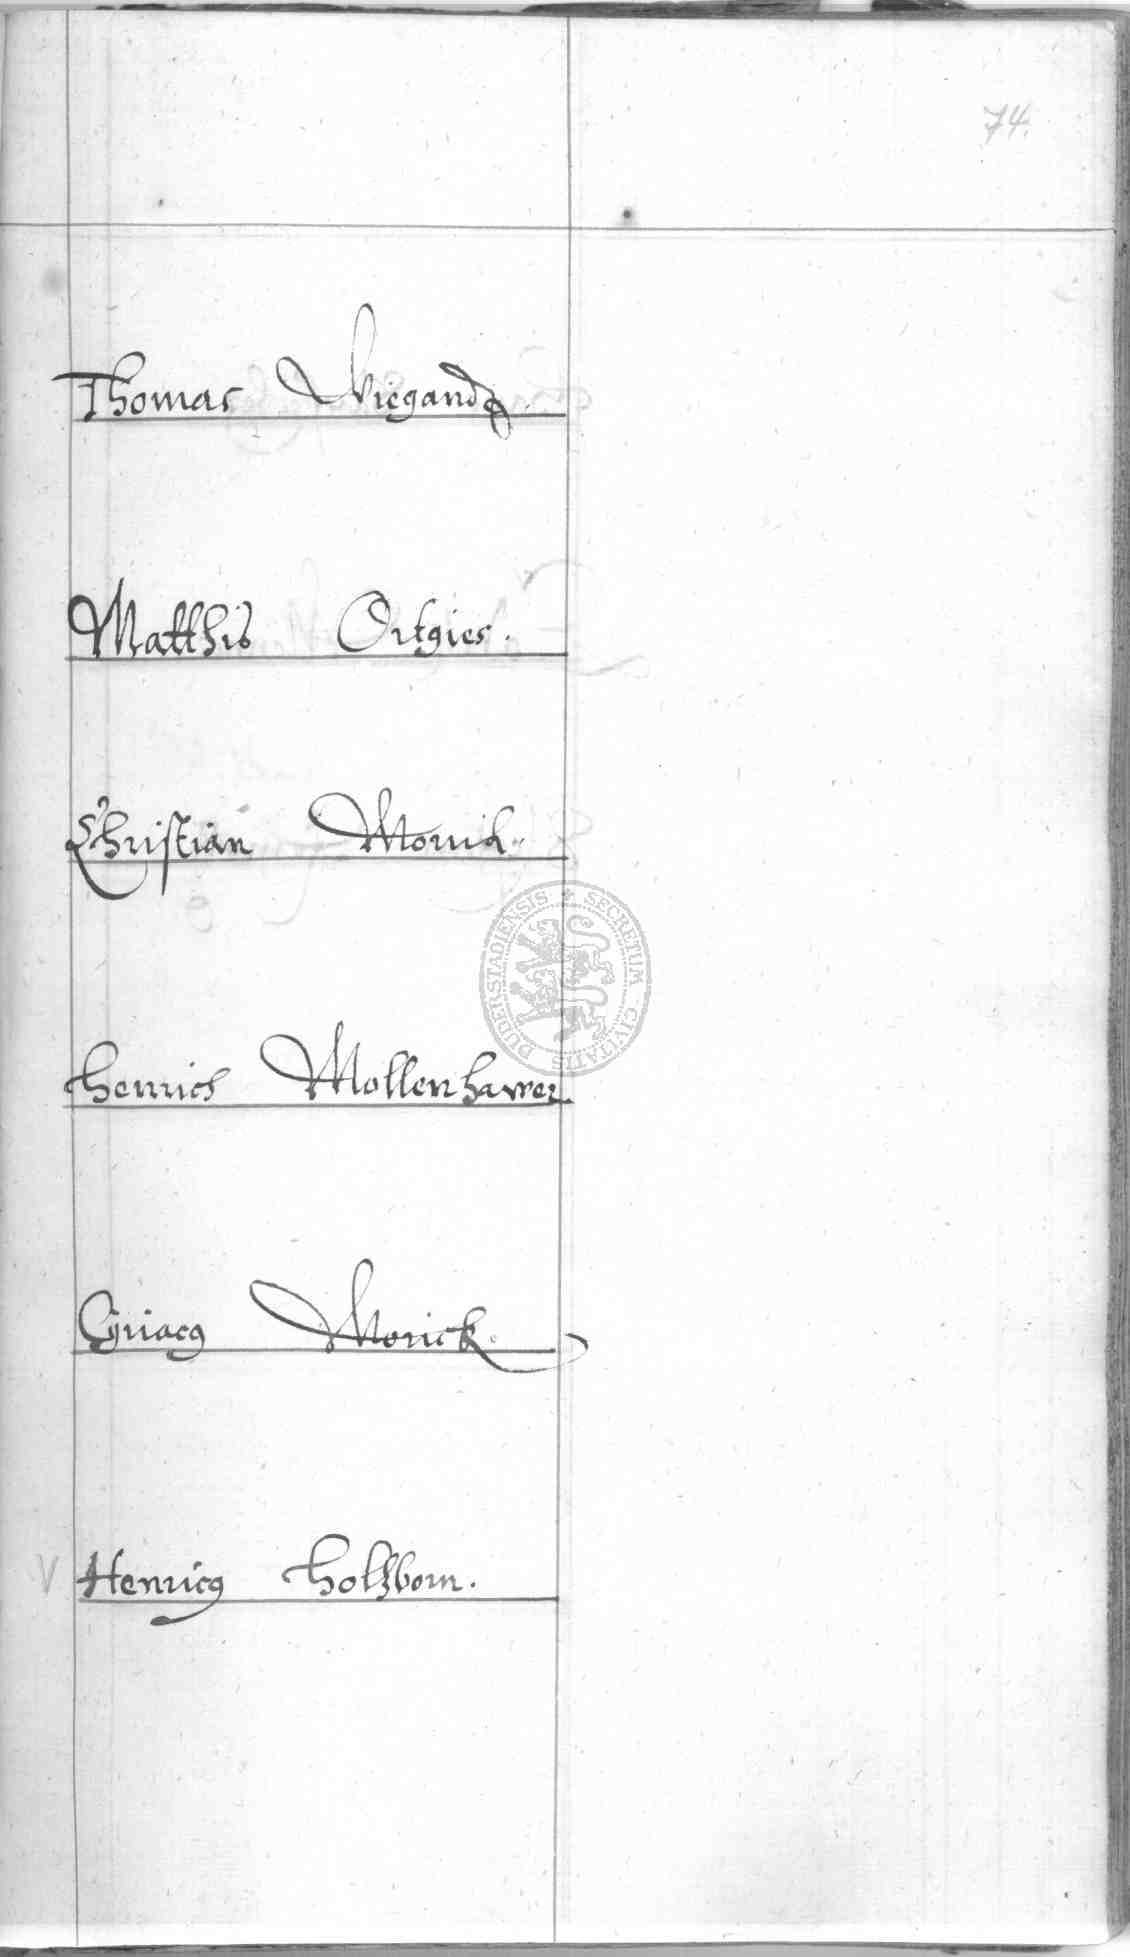 74.
Thomas Wiegandt.
Matthis Ortgies.
Christian Morick.
Henrich Mollenhawer.
Cyriacg Morick.
V Henricg Holtzborn.
SECRETUM CIVITATIS DUDERSTADIENSIS